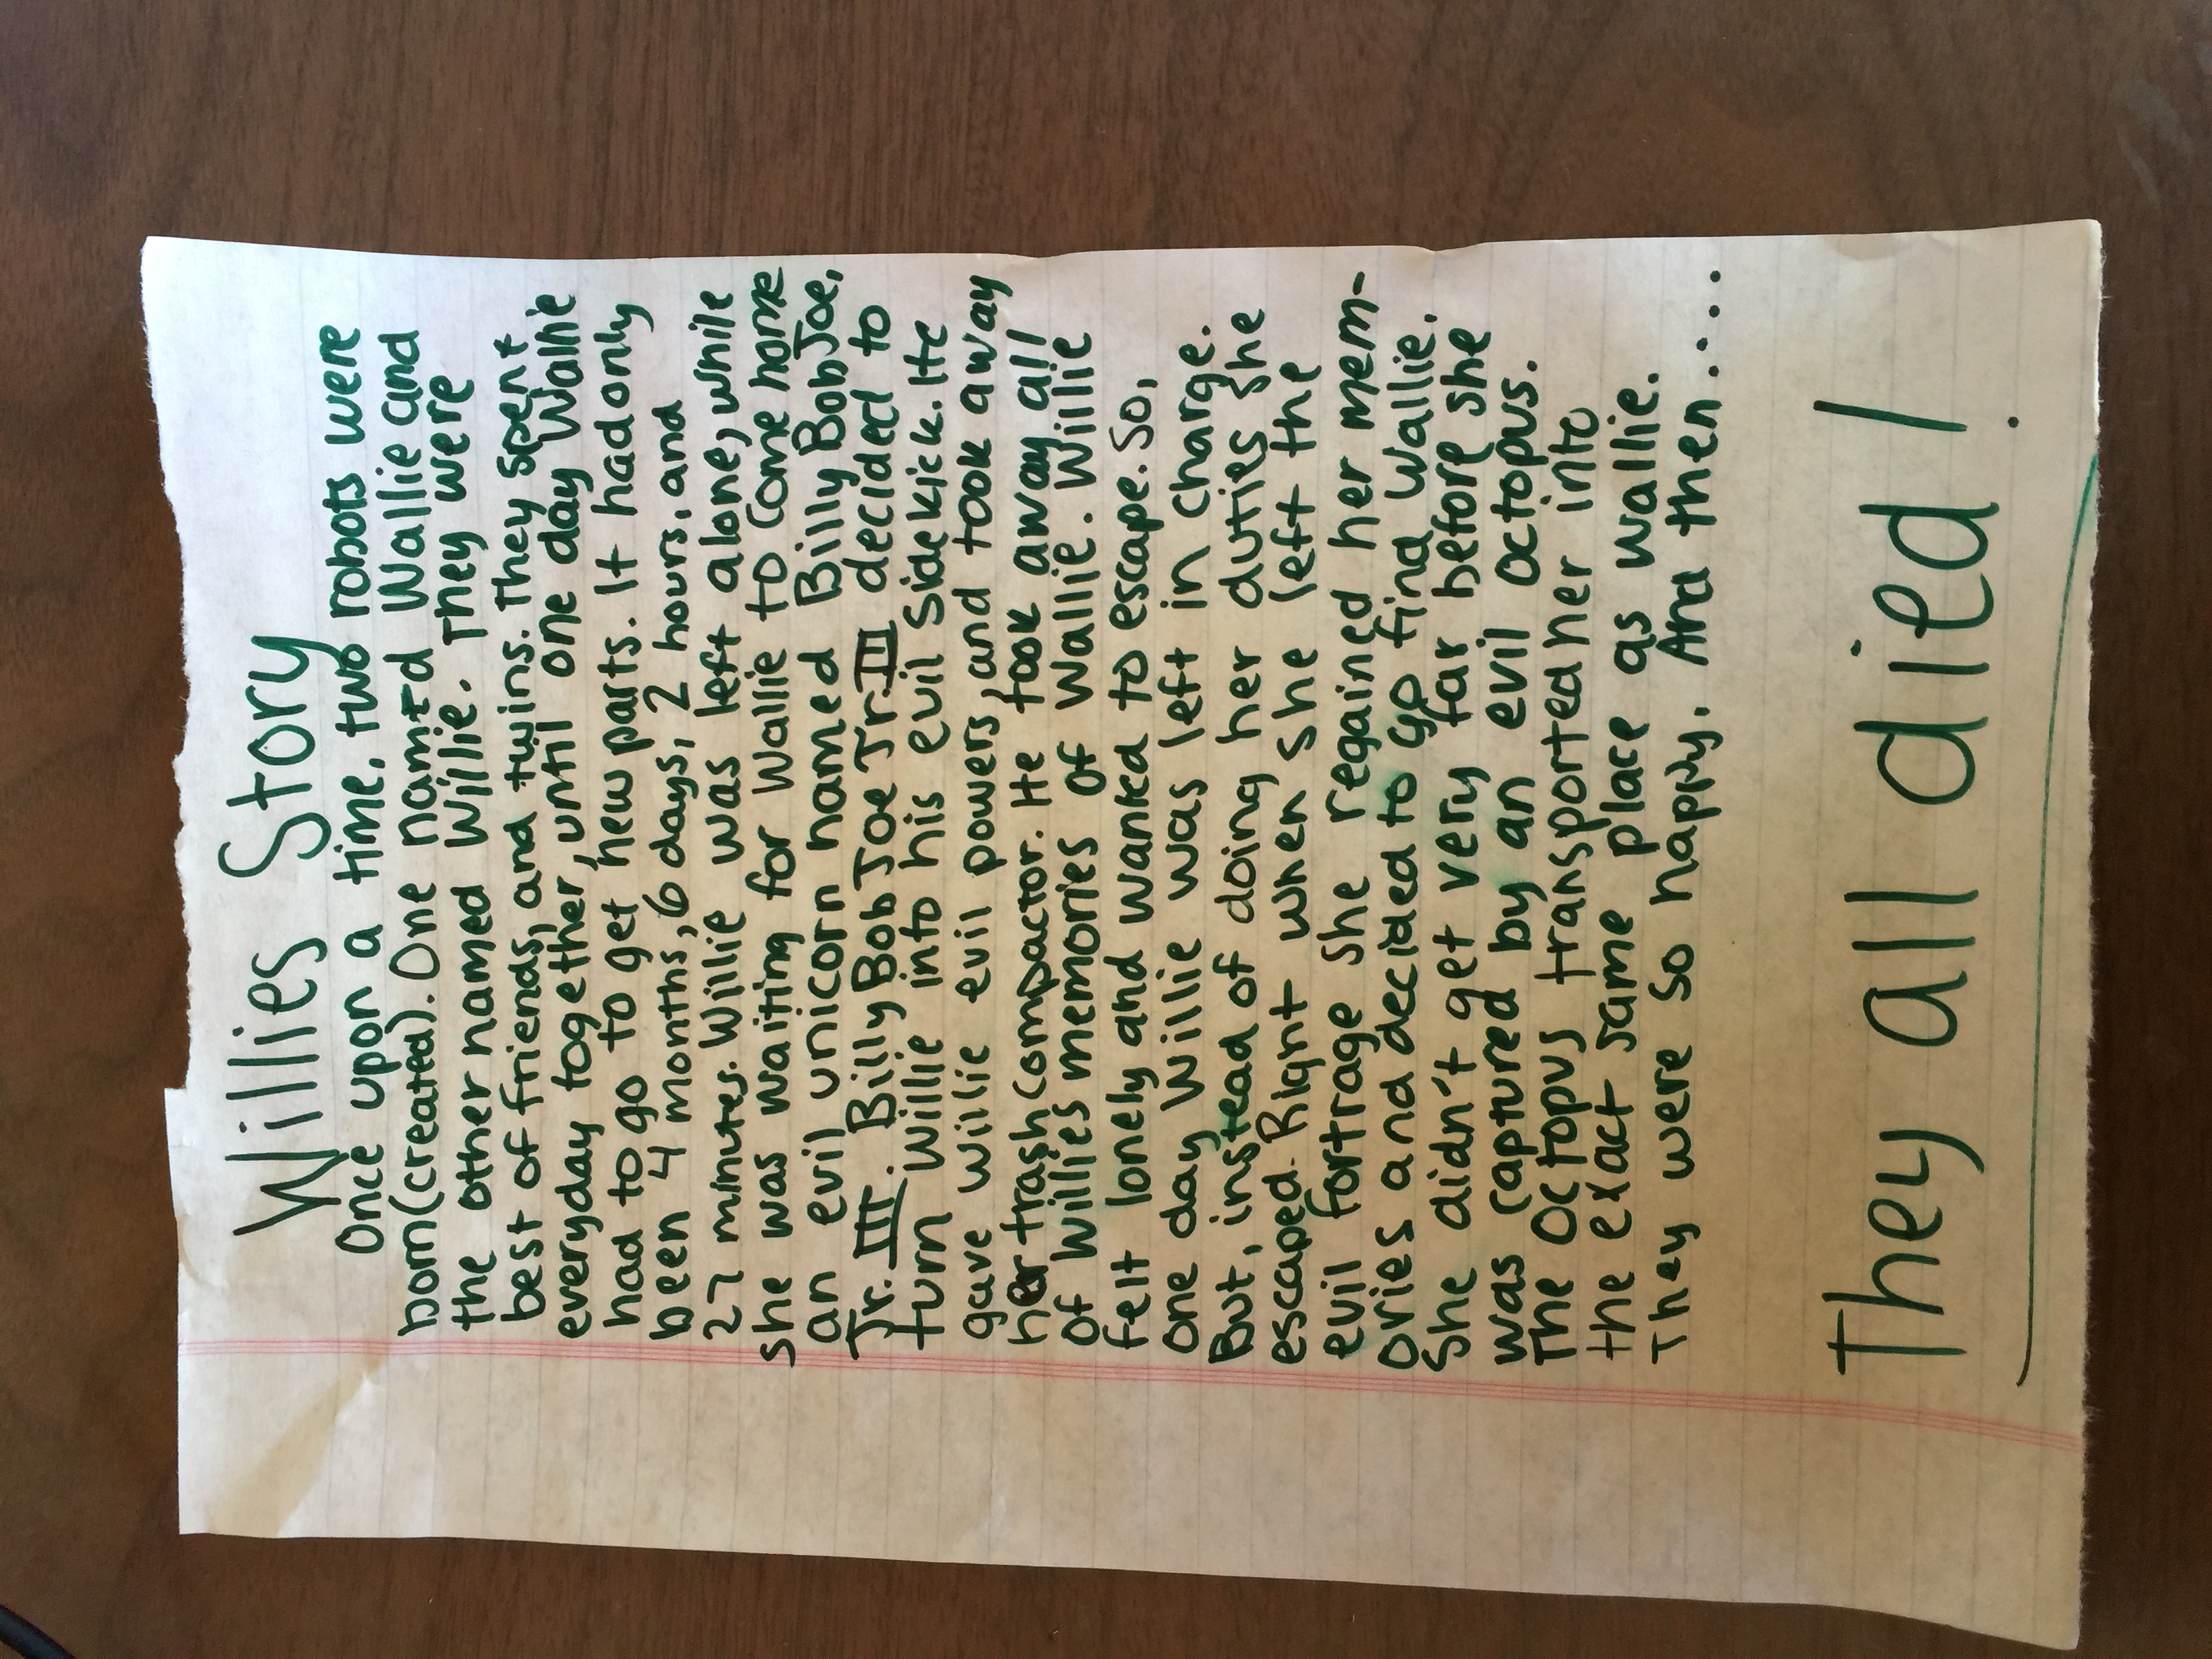 Willies Story
Once upon a time, two robots were
born (created). One named Wallie and
the other named Willie. They were
best of friends, and twins. They spent
everyday together, until one day Wallie
had to go to get new parts. It had only
been 4 months, 6 days, 2 hours, and
27 minutes. Willie was left alone, while
she was waiting for Wallie to come home
an evil unicorn named Billy Bob Joe,
Jr. III. Billy Bob Joe Jr. III decided to
turn Willie into his evil sidekick. He
gave Willie evil powers, and took away
her trash compactor. He took away all
of Willies memories of Wallie. Willie
felt lonely and wanted to escape. So,
one day Willie was left in charge.
But, instead of doing her duties she
escaped. Right when she left the
evil fortrage she regained her mem-
ories and decided to go find Wallie.
She didn't get very far before she
was captured by an evil octopus.
The octopus transported her into
the exact same place as wallie.
They were so happy. And then.....
They all died!